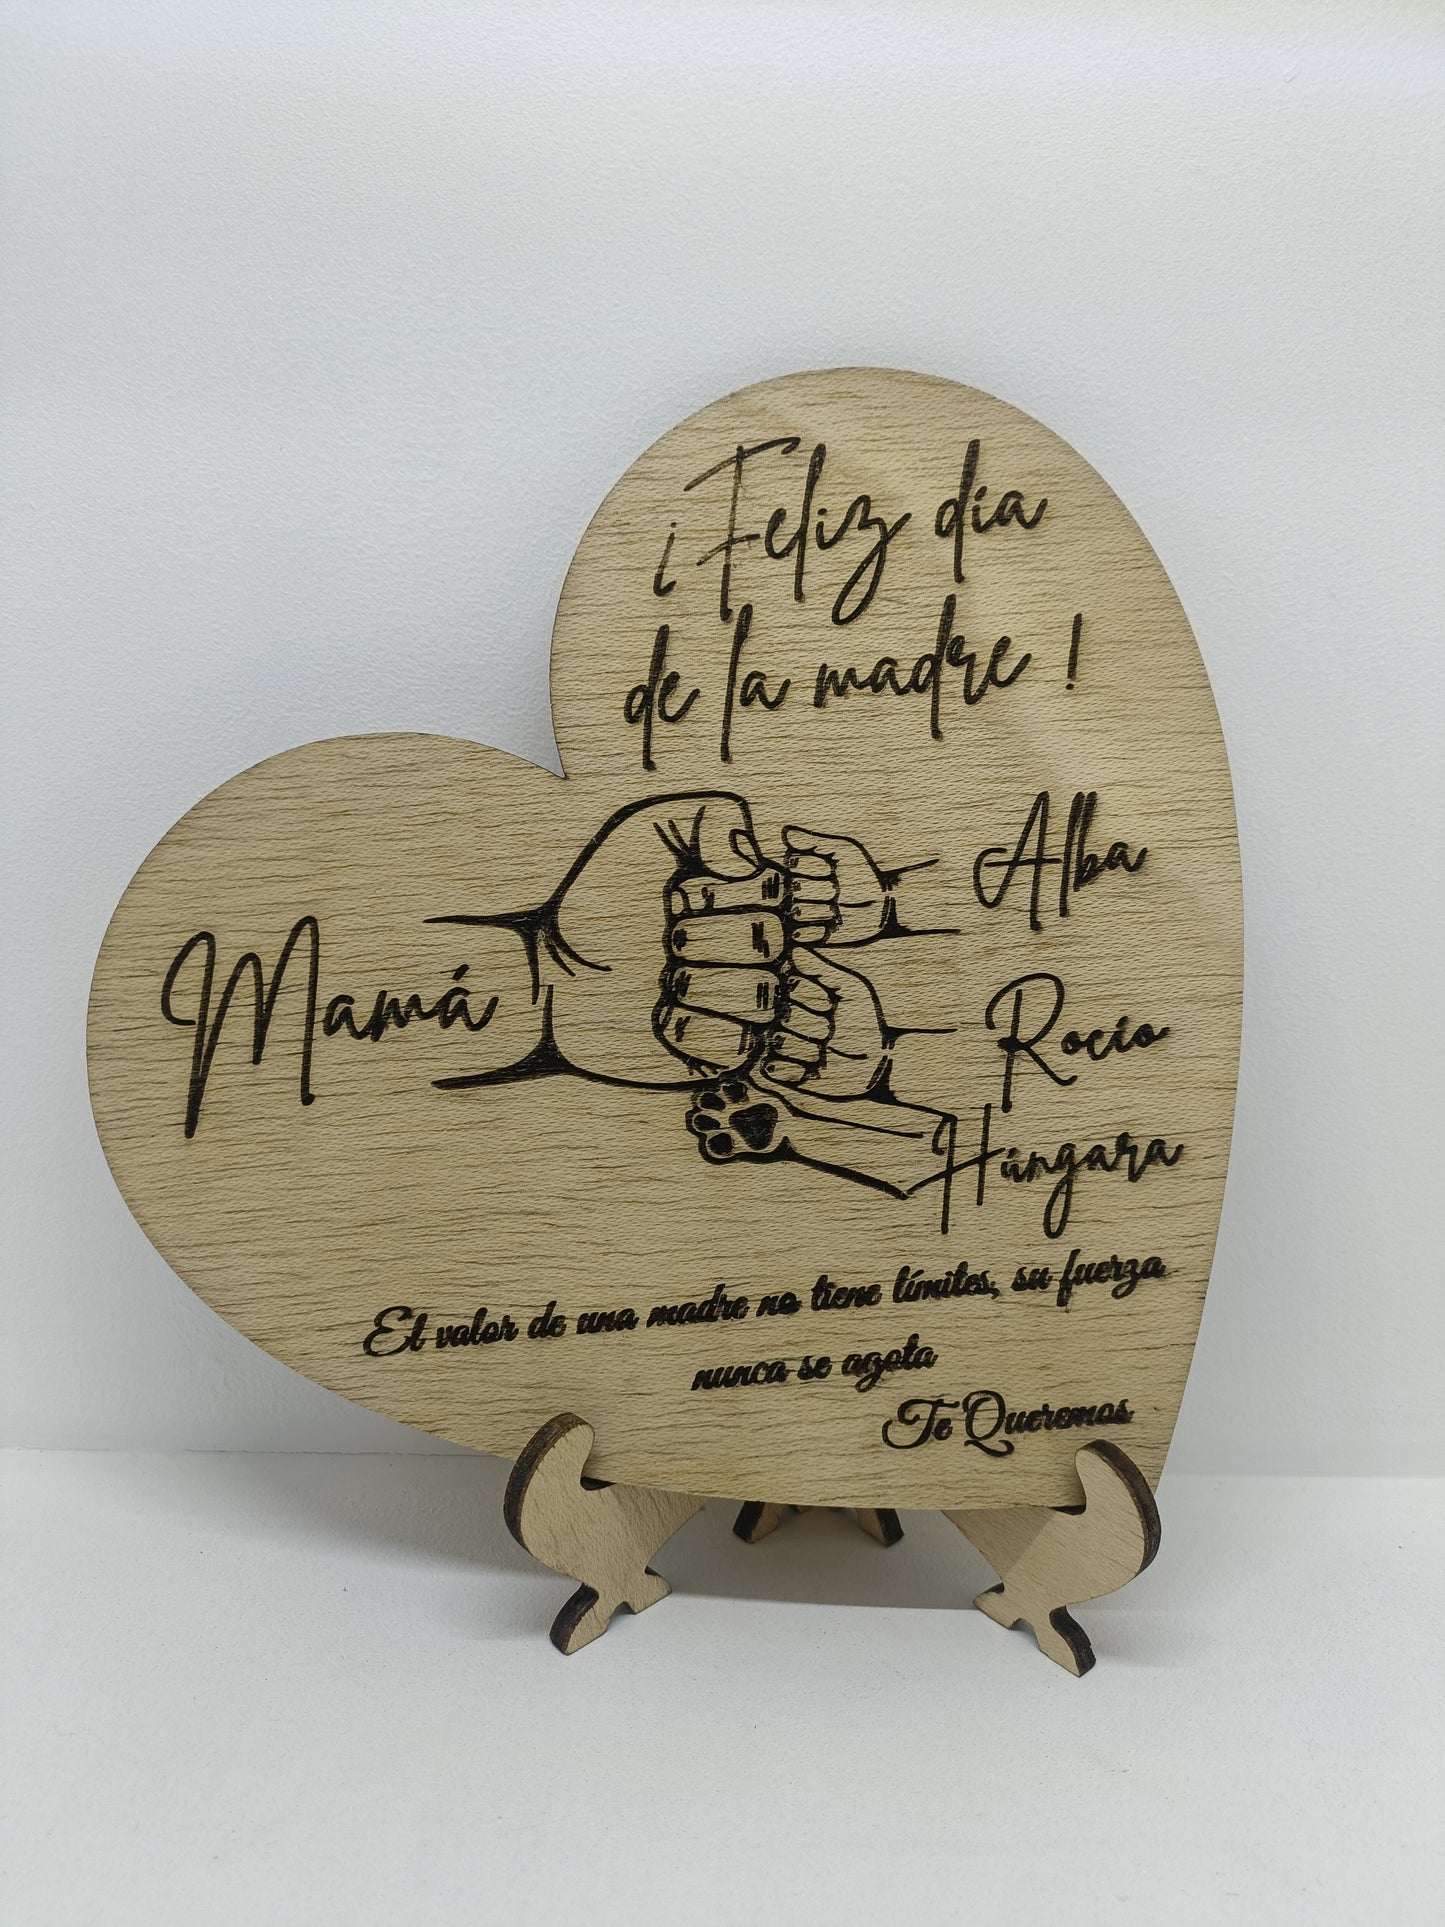 ¡Feliz día
de la madre!
Mamá
Alba
Rocío
Húngara
El valor de una madre no tiene límites, su fuerza
nunca se agota
Te Queremos